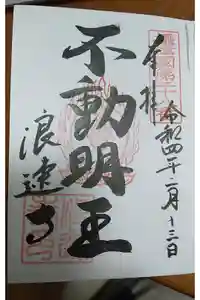 奉拝
令和四年二月十三日
不動明王
浪速寺